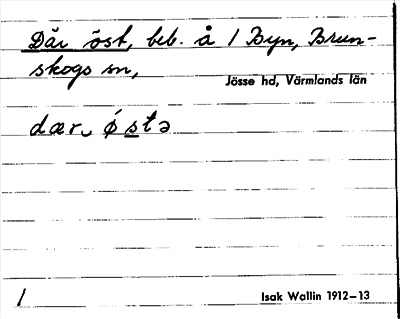 Där öst, beb. å 1 Byn, Brun-
skogs sn,
Jösse hd, Värmlands län
dær østə
1
Isak Wallin 1912–13